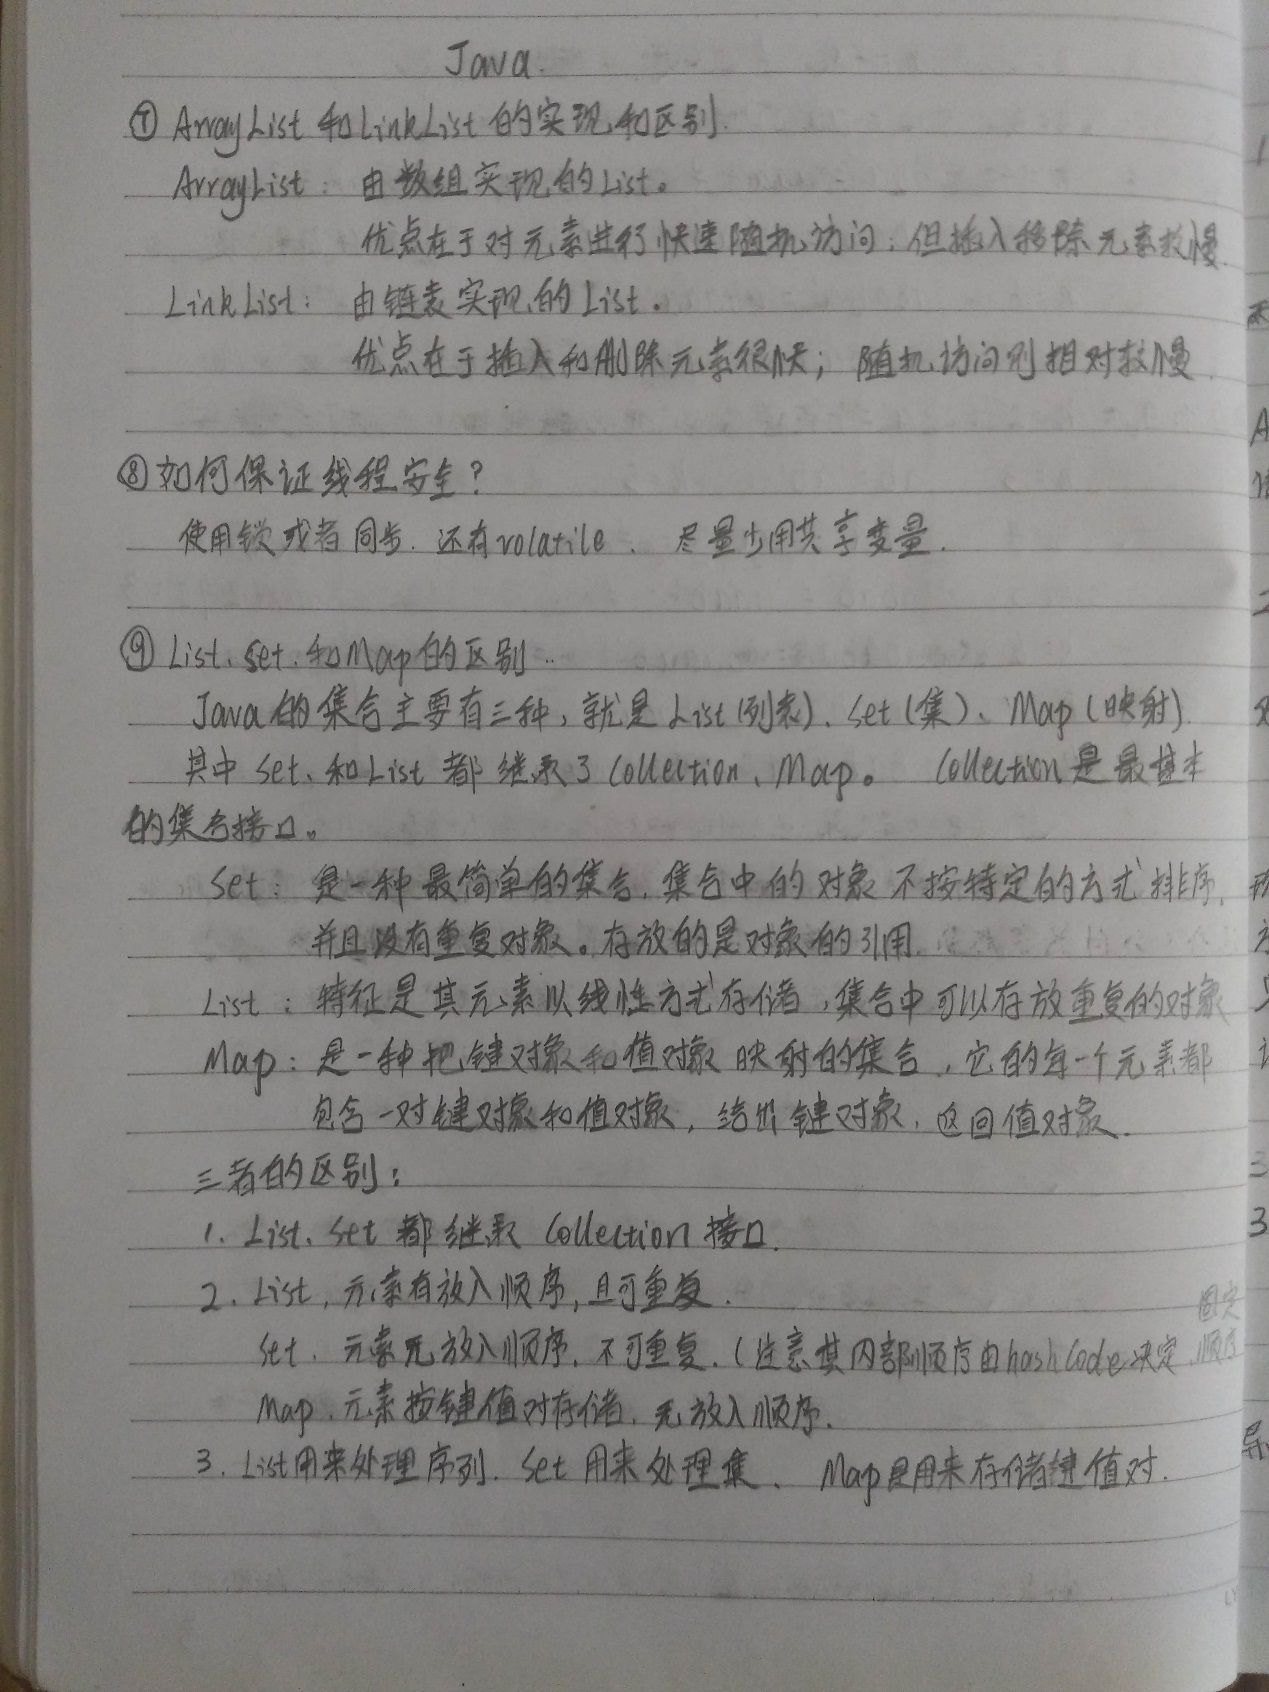 Java.
⑦ ArrayList 和LinkList的实现和区别.
ArrayList: 由数组实现的List。
优点在于对元素进行快速随机访问; 但插入移除元素较慢.
LinkList: 由链表实现的List。
优点在于插入和删除元素很快; 随机访问则相对较慢.
⑧如何保证线程安全?
使用锁或者同步. 还有volatile. 尽量少用共享变量.
⑨ List、set、和Map的区别..
Java的集合主要有三种, 就是List(列表)、set(集)、Map(映射).
其中set、和List都继承了Collection、Map。 Collection是最基本
的集合接口。
Set: 是一种最简单的集合. 集合中的对象不按特定的方式排序.
并且没有重复对象。存放的是对象的引用.
List: 特征是其元素以线性方式存储, 集合中可以存放重复的对象
Map: 是一种把键对象和值对象映射的集合, 它的每一个元素都
包含一对键对象和值对象, 给出键对象, 返回值对象.
三者的区别:
1. List、set都继承Collection接口.
2. List, 元素有放入顺序, 且可重复.
固定
set. 元素无放入顺序. 不可重复. (注意其内部顺序由hashCode决定. 顺序
Map. 元素按键值对存储. 无放入顺序.
3. List用来处理序列. Set用来处理集、 Map是用来存储键值对.